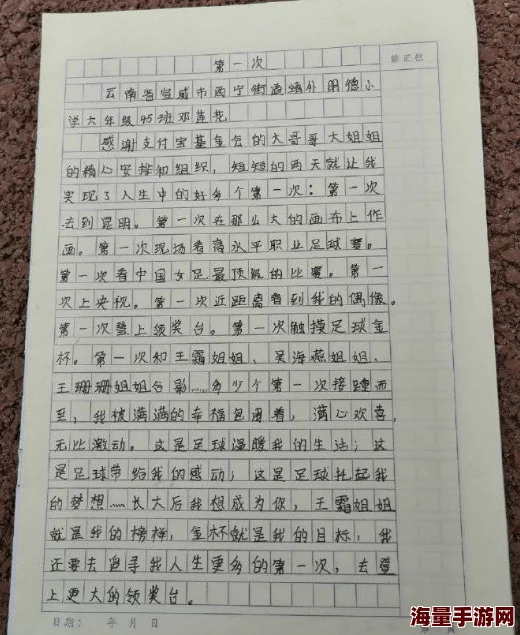 修正栏
第一次
云南省宣威市西宁街道靖外明德小
学六年级45班邓莲花
感谢支付宝基金会的大哥哥大姐姐
的精心安排和组织，短短的两天就让我
实现了人生中的好多个第一次：第一次
去到昆明。第一次在那么大的画布上作
画。第一次现场看高水平职业足球赛。
第一次看中国女足最顶级的比赛。第一
次上央视。第一次近距离看到我的偶像。
第一次登上领奖台。第一次触摸足球金
杯。第一次和王霜姐姐、吴海燕姐姐、
王珊珊姐姐合影……多少个第一次接踵而
至，我被满满的幸福包围着，满心欢喜，
无比激动。这是足球温暖我的生活；这
是足球带给我的感动；这是足球托起我
的梦想……长大后我想成为你，王霜姐姐
就是我的榜样，金杯就是我的目标，我
还要去追寻我人生更多的第一次，去登
上更大的领奖台。
日期： 年 月 日
海量手游网